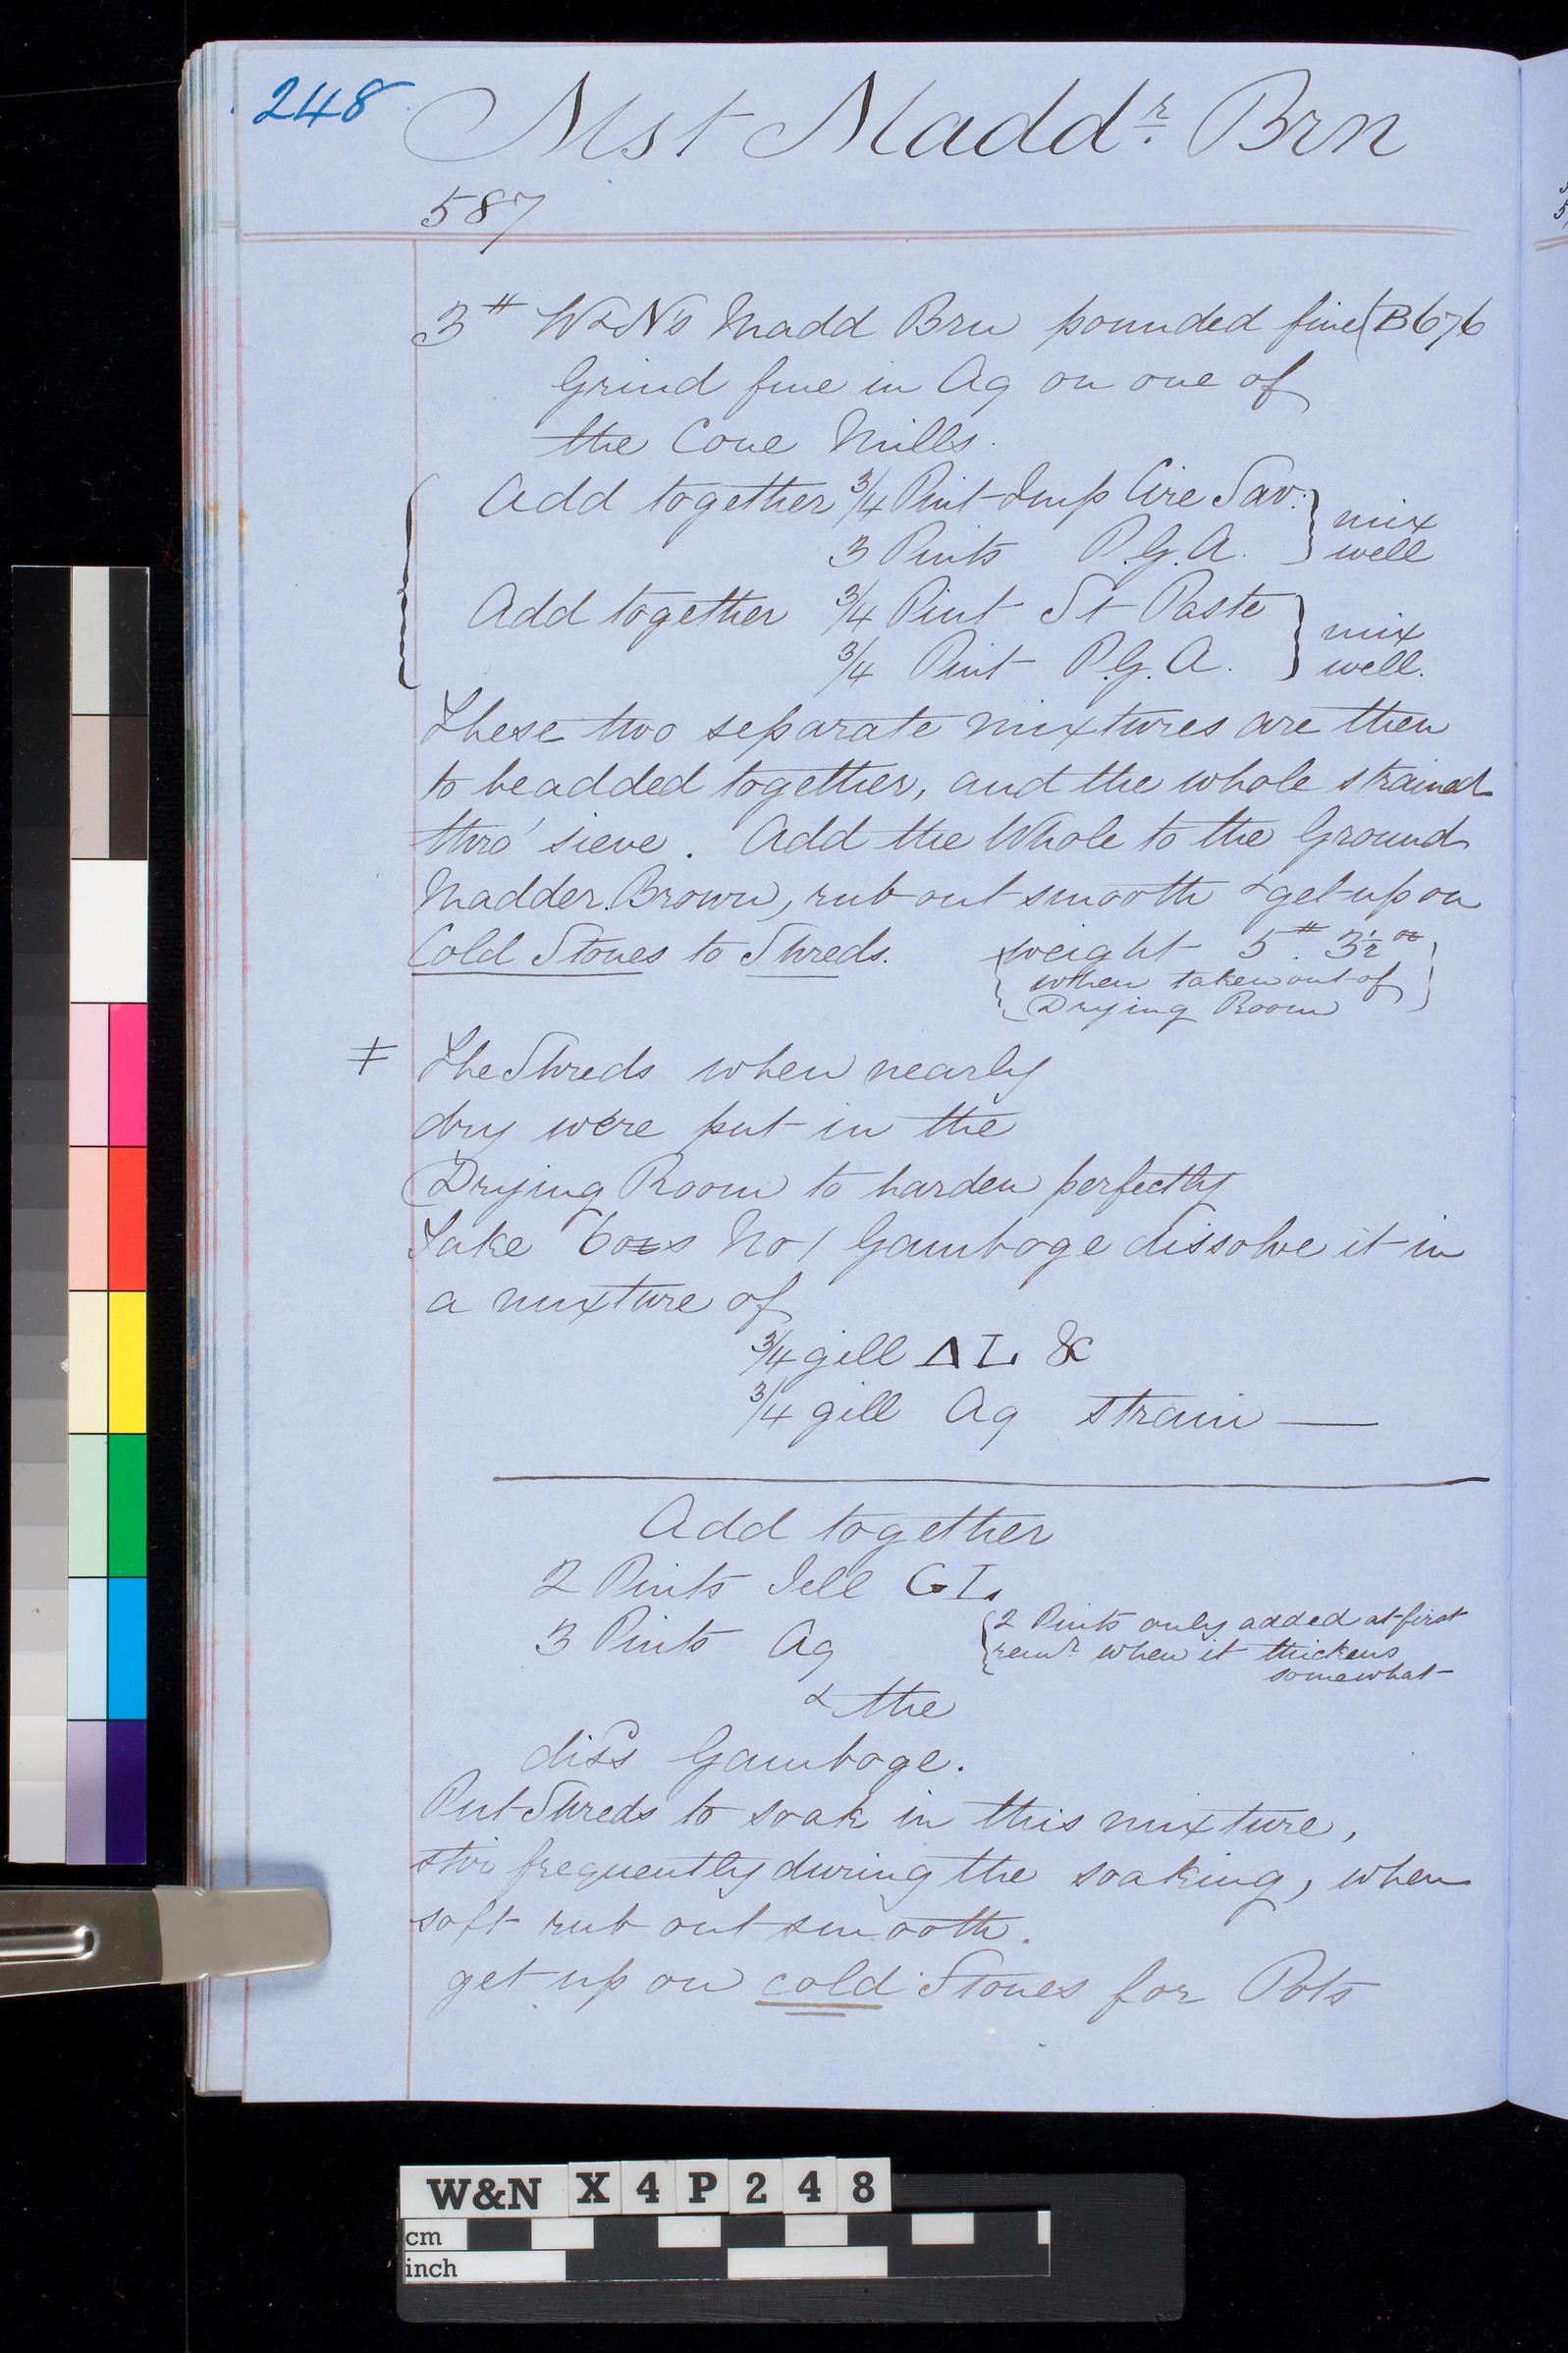 248
Mst Madd^r. Brn
587
3# W&N's Madd Brn pounded fine (B676
Grind fine in Aq on one of
the Cone Mills.
Add together 3/4 Pint Imp Cire Sav. } mix
3 Pints P.G.A. } well
Add together 3/4 Pint St Paste } mix
3/4 Pint P.G.A. } well.
These two separate mixtures are then
to be added together, and the whole strained
thro' sieve. Add the Whole to the Ground
Madder Brown, rub out smooth & get up on
Cold Stones to Shreds.
{ weight 5#. 3 1/2 oz
when taken out of
Drying Room }
‡ The Shreds when nearly
dry were put in the
Drying Room to harden perfectly
Take 6 ozs No 1 Gamboge dissolve it in
a mixture of
3/4 gill Δ L &
3/4 gill Aq strain —
Add together
2 Pints Jell G L
3 Pints Aq
{ 2 Pints only added at first
rem^r when it thickens
somewhat
& the
diss Gamboge.
Put Shreds to soak in this mixture,
stir frequently during the soaking, when
soft rub out smooth.
get up on cold Stones for Pots
W&N X 4 P 2 4 8
cm
inch